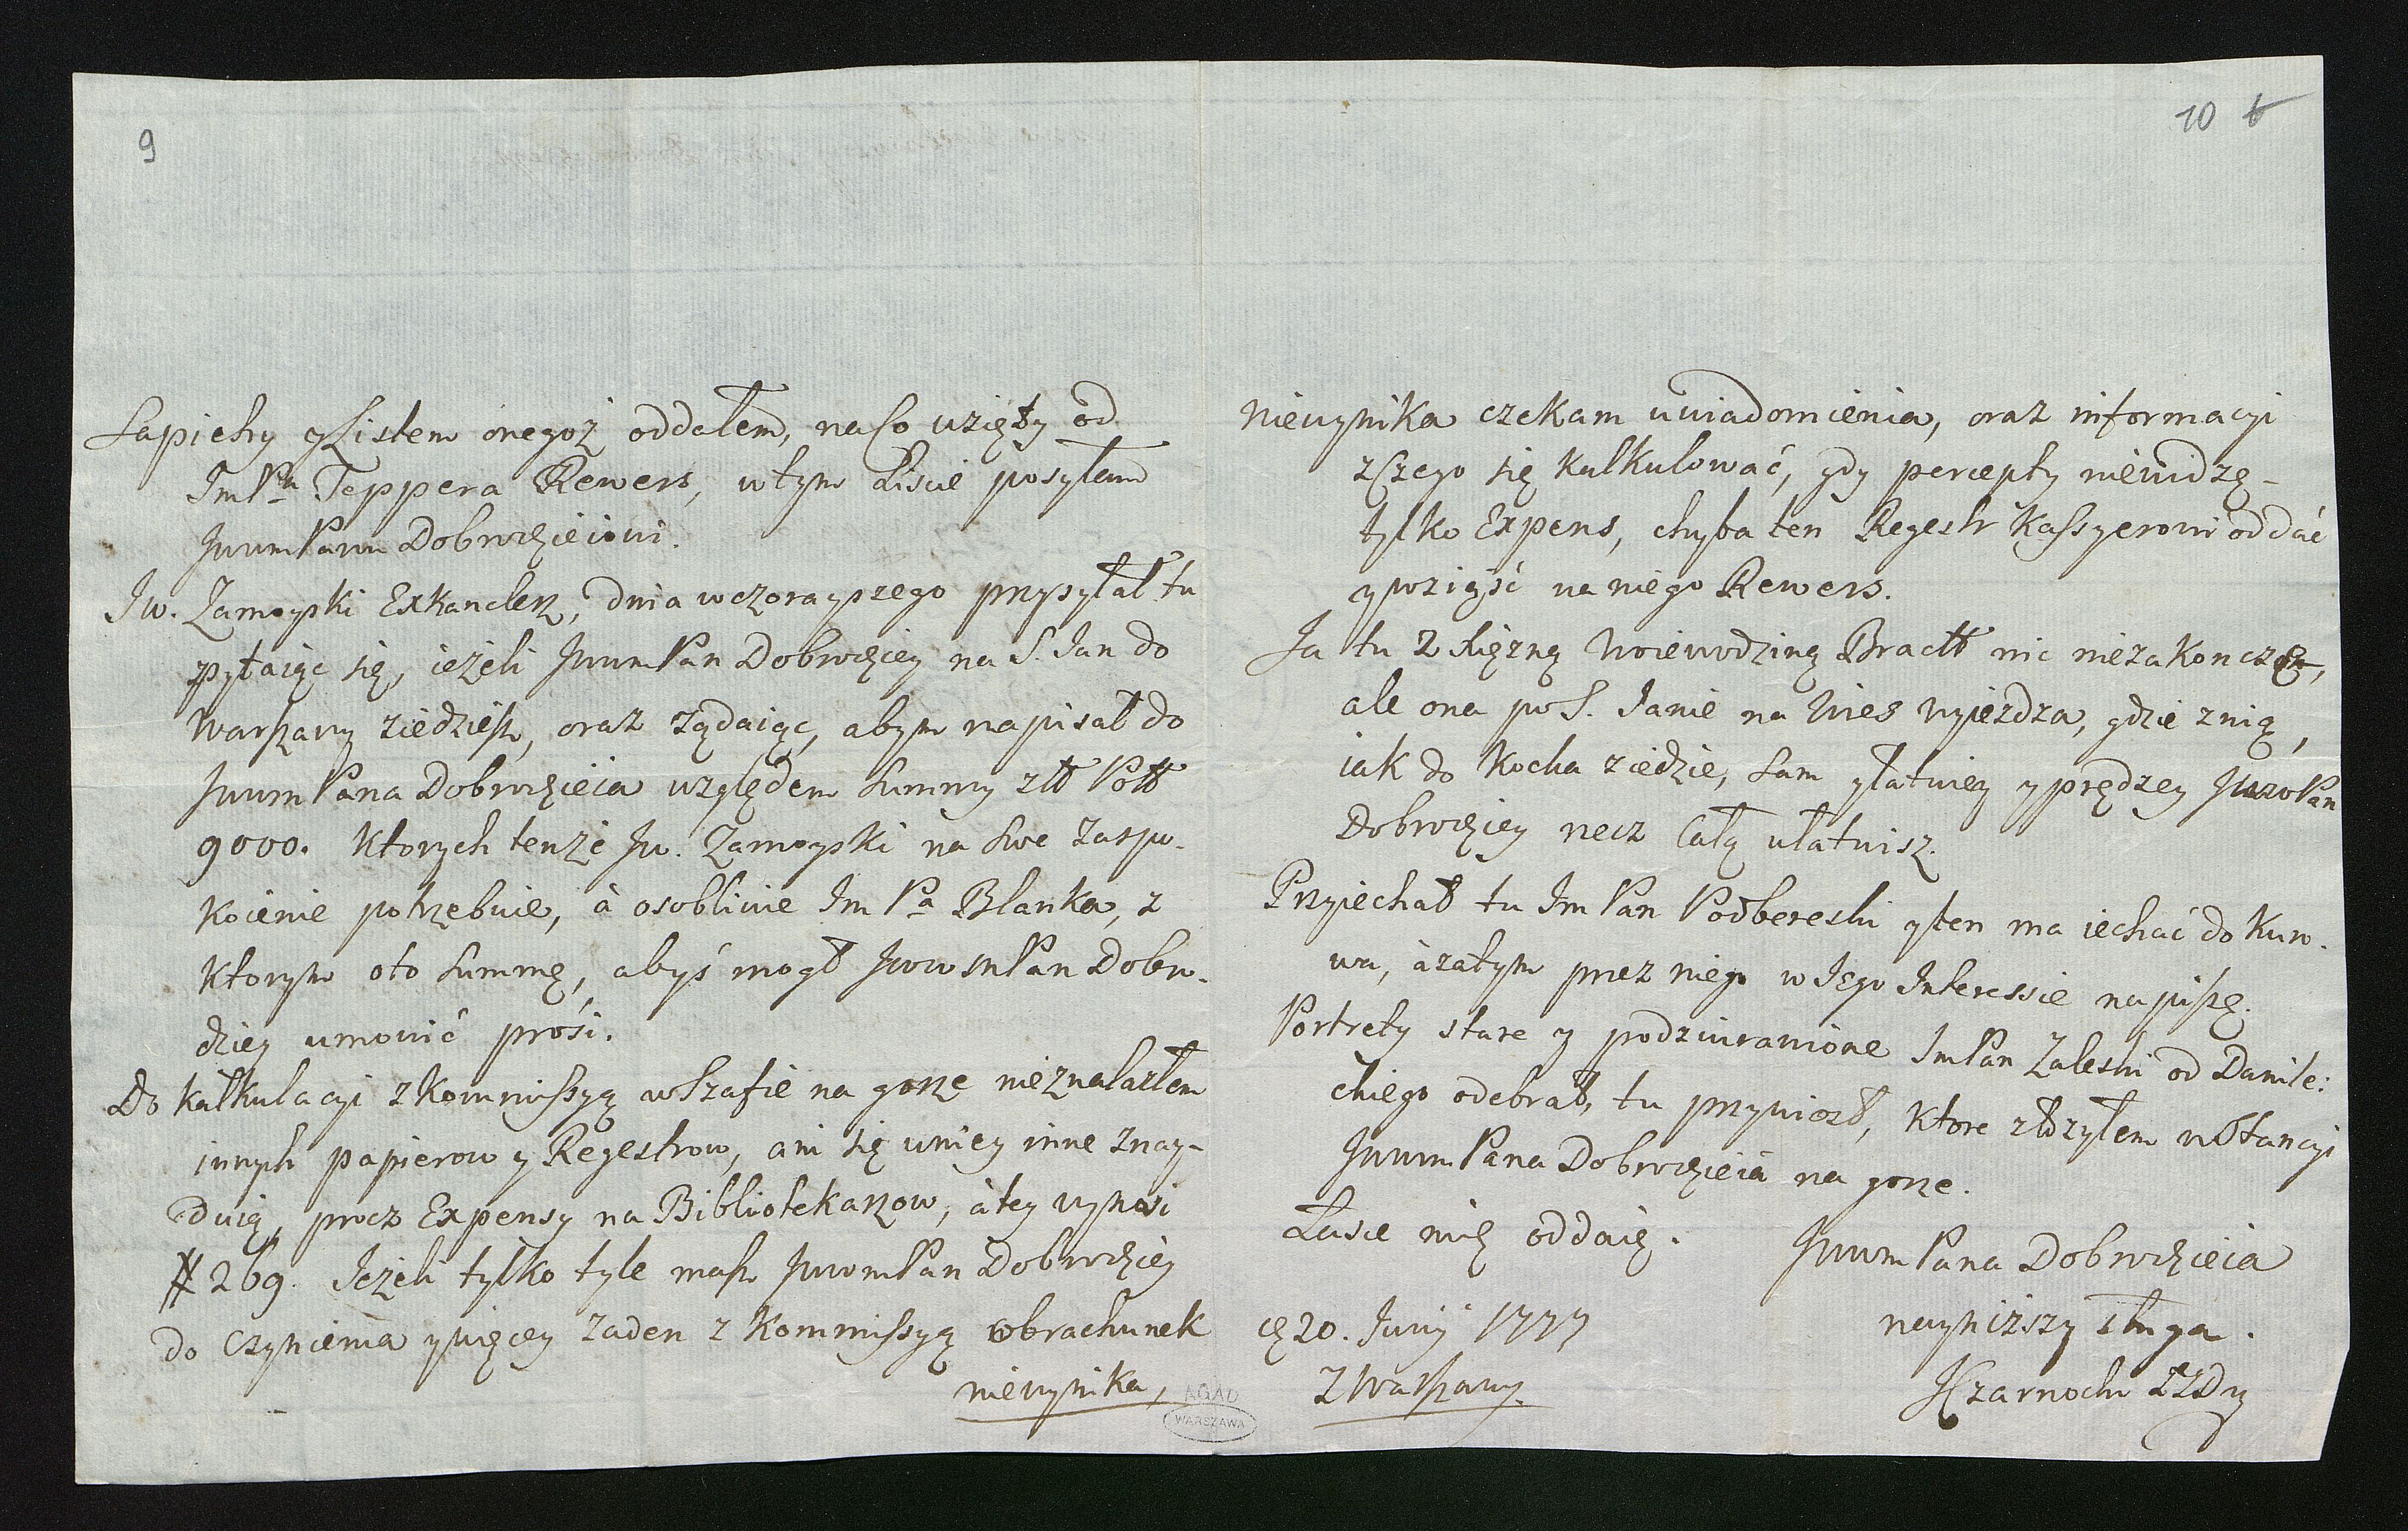 9
Sapiehy y Listem onegoż oddałem, na Co wzięty od
ImPa Teppera Rewers, w tym Liscie posyłam
JwwmPanu Dobrodzieiowi.
Jw. Zamoyski ExKanclerz, dnia wczorayszego przysyłał tu
pytaiąc się, ieżeli JwwmPan Dobrodziey na S. Jan do
Warszawy ziedziesz, oraz żądaiąc, abym napisał do
Jwwm Pana Dobrodzieia względem Summy złł Poll
9000. Ktorych tenże Jw. Zamoyski na Swe zaspo-
Koienie potrzebuie, à osobliwie Im Pa Blanka, z
Ktorym oto Summę, abyś mogł Jwwm Pan Dobro-
dziey umowić prosi.
Do Kalkulacyi z Kommissyą w Szafie na gorze nieznalazłem
innych papierow y Regestrow, ani się w niey inne znay-
duią, procz Expensy na Bibliotekarzow, à tey wynosi
# 269. Jeżeli tylko tyle masz JwwmPan Dobrodziey
do Czynienia y więcey żaden z Kommissyą obrachunek
niewynika,
AGAD
WARSZAWA
10 6
niewynika czekam uwiadomienia, oraz informacyi
z Czego się Kalkulować, gdy percepty niewidzę
tylko Expens, chyba ten Regestr Kassyerowi oddać
y wziąść na niego Rewers.
Ja tu z Xiężną Woiewodziną Bracłł nic niezakonczę,
ale ona po S. Janie na Wies wyieżdza, gdzie z nią,
iak do Kocka ziedzie, Sam y łatwiey y prędzey JwwmPan
Dobrodziey rzecz Całą ułatwisz.
Przyiechał tu Im Pan Podbereski y ten ma iechać do Kuro-
wa, à zatym przez niego w Jego Interessie napiszę.
Portrety stare y podziurawione ImPan Zaleski od Danile:
ckiego odebrał, tu przywiozł, Ktore złożyłem w Stancyi
Jwwm Pana Dobrodzieia na gorze.
Łasce mię oddaię.
Jwwm Pana Dobrodzieia
nayniższy sługa.
JCzarnocki
20. Junij 1777
z Warszawy.